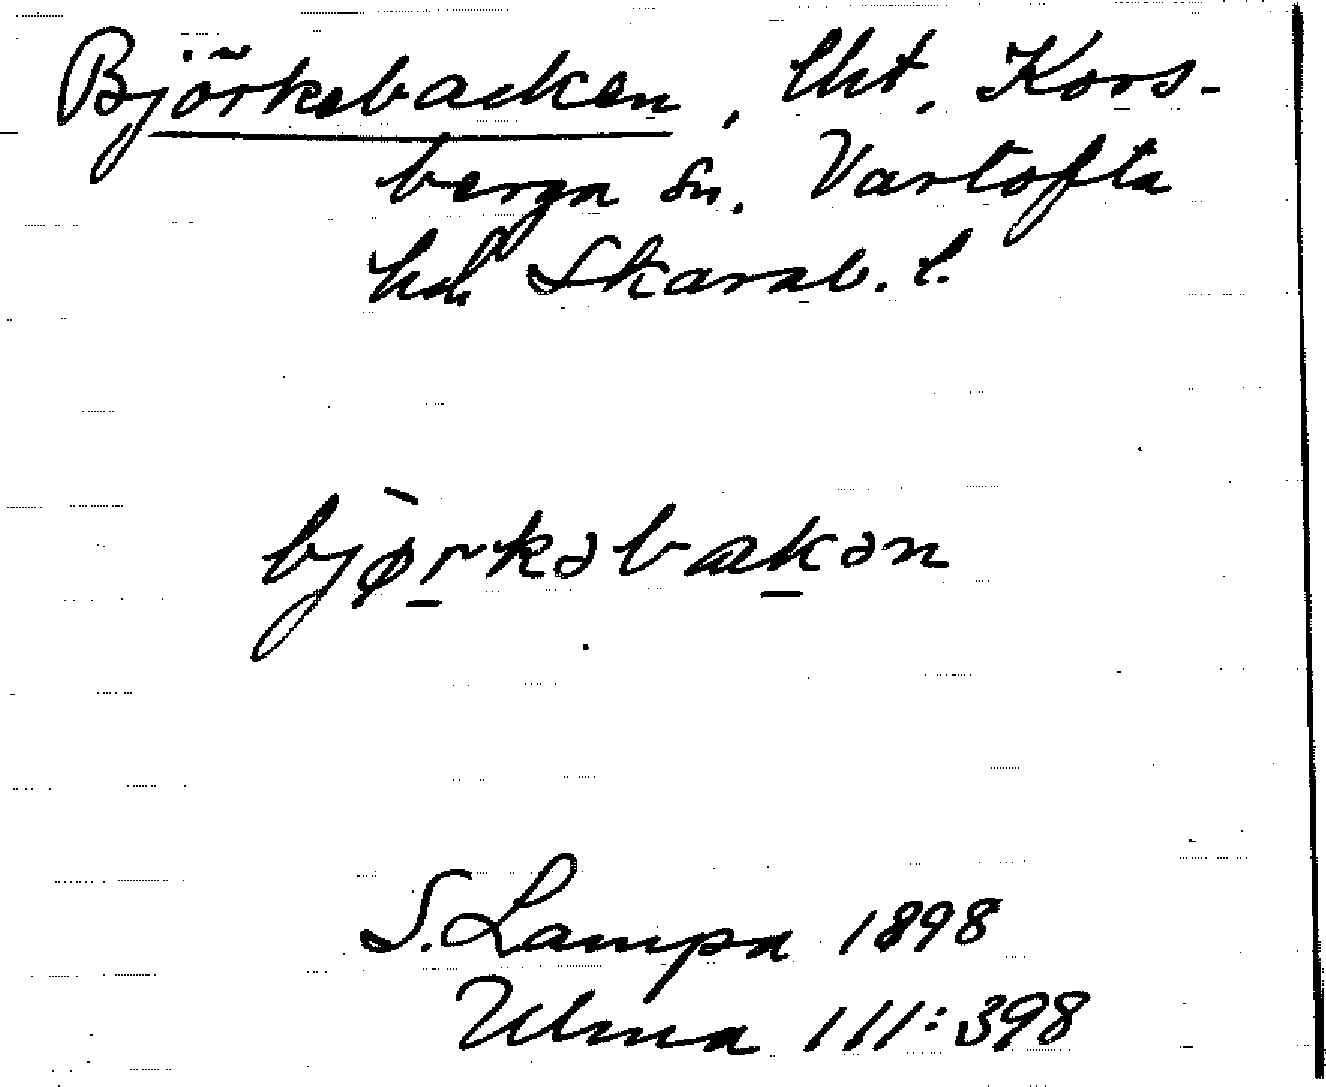 Björkebacken, lht, Kors-
berga sn. Vartofta
hd. Skarab. l.
bjø̀rkəbakən
S. Lampa 1898
Ulma 111:398